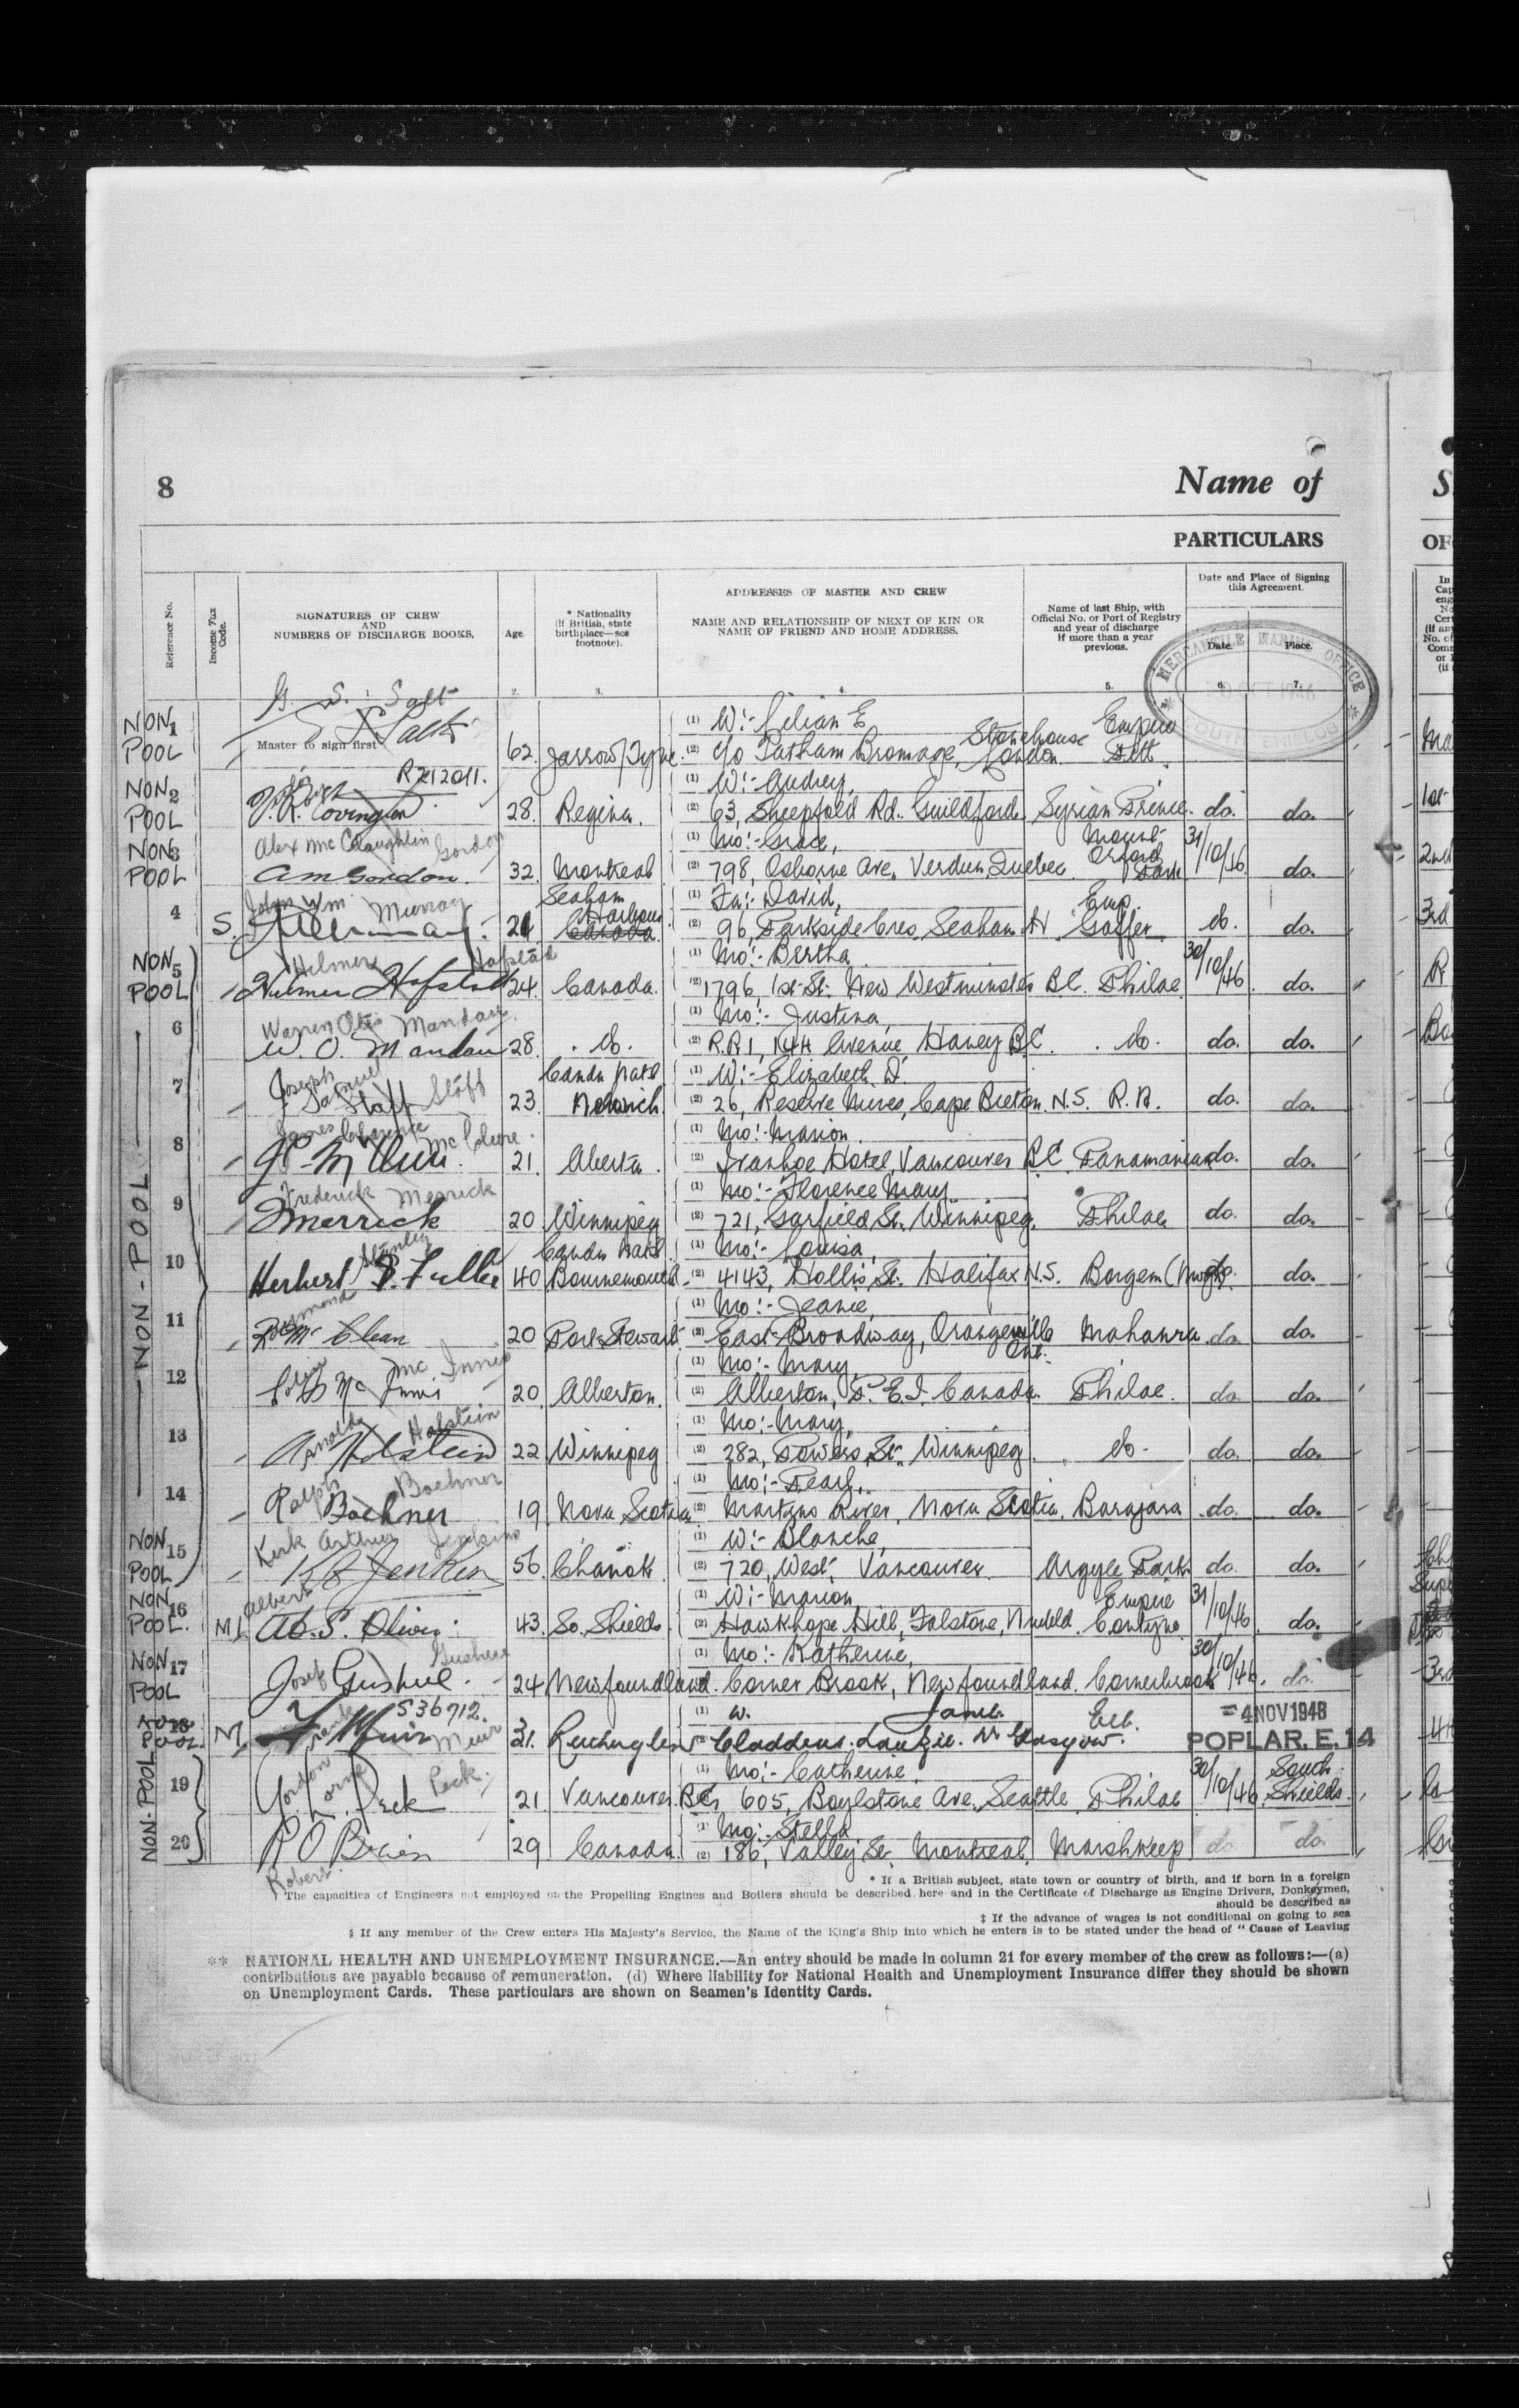 8
Name of
PARTICULARS
OF
Reference No.
Income Tax Code.
SIGNATURES OF CREW AND NUMBERS OF DISCHARGE BOOKS.
Age.
* Nationality (If British, state birthplace—see footnote).
ADDRESSES OF MASTER AND CREW
NAME AND RELATIONSHIP OF NEXT OF KIN OR NAME OF FRIEND AND HOME ADDRESS.
Name of last Ship, with Official No. or Port of Registry and year of discharge if more than a year previous.
Date and Place of Signing this Agreement.
Date.
Place.
2. 3. 4. 5. 6. 7.
MERCANTILE MARINE OFFICE
SOUTH SHIELDS
G. S. Salt
NON POOL 1 Master to sign first Salt 62 Jarrow/Tyne (1) W:- Lilian E
(2) c/o Tatham Bromage, Stonehouse London Empire
R212011.
NON POOL 2 Covington 28. Regina. (1) W:- Audrey,
(2) 63, Sheepfold Rd. Guildford. Syrian Prince. do. do.
Alex McClaughlin Gordon
NON POOL 3 A M Gordon. 32. Montreal (1) Mo:- Grace,
(2) 798, Osborne Ave, Verdun, Quebec. Mount Orford Park 31/10/46 do.
John Wm. Murray
4 S. Murray. 21 Seaham Harbour Canada (1) Fa:- David,
(2) 96, Parkside Cres. Seaham H Emp. Gaffer do. do.
Hilmer Hofstad
NON POOL 5 Hilmer Hofstad 24. Canada. (1) Mo:- Bertha
(2) 1796, 1st St. New Westminster B.C. Philae 30/10/46. do.
Warren Otis Mandau
6 W. O. Mandau 28. do. (1) Mo:- Justina,
(2) R.R 1, 14th Avenue, Haney B.C. do. do. do.
Joseph Samuel Staff
7 Staff 23. Canda Natl Norwich (1) W:- Elizabeth D.
(2) 26, Reserve Mines, Cape Breton. N.S. R.N. do. do.
James Clarence McClure.
8 21. Alberta. (1) Mo:- Marion.
(2) Ivanhoe Hotel, Vancouver B.C. Panamanian do. do.
Frederick Merrick
9 Merrick 20 Winnipeg (1) Mo:- Florence Mary
(2) 721, Garfield St. Winnipeg. Philae do. do.
Stanley
10 Herbert S. Fuller 40 Canda Natl Bournemouth (1) Mo:- Louisa,
(2) 4143, Hollis St. Halifax N.S. Borgem do. do.
Raymond
11 R. McClean 20 Port Stewart (1) Mo:- Jeanie,
(2) East Broadway, Orangeville Ont. Mahanra do. do.
Mc Innis
12 Mc Innis 20. Alberton. (1) Mo:- Mary
(2) Alberton, P.E.I. Canada. Philae. do. do.
Arnold Holstein
13 A Holstein 22 Winnipeg (1) Mo:- Mary,
(2) 282, Powers St. Winnipeg. do. do. do.
Ralph Boehner
14 Boehner 19. Nova Scotia (1) Mo:- Pearl,
(2) Martins River, Nova Scotia. Barajara do. do.
Kirk Arthur Jenkins
NON POOL 15 K A Jenkins 56. (1) W:- Blanche,
(2) 720, West, Vancouver. Argyle Park do. do.
Albert
NON POOL. 16 Ab. S. Oliver 43. So. Shields. (1) W:- Marion
(2) Hawkhope Hill, Falstone, Nmbld. Empire Contyne 31/10/46. do.
Gushue
NON POOL 17 Josef Gushue. 24 Newfoundland. (1) Mo:- Katherine,
Corner Brook, Newfoundland. Cornerbrook 30/10/46. do.
536712.
Frank Muir
NON POOL. 18 F Muir 31. Rutherglen (1) W. Janet.
(2) Claddens. Nr Glasgow. = 4 NOV 1946 POPLAR. E. 14
Gordon Lorne Peck.
19 G. Lorne Peck 21. Vancouver. B.C. (1) Mo:- Catherine.
605, Boylstone Ave. Seattle Philae 30/10/46. South Shields.
NON-POOL
20 R O Brien 29. Canada. (1) Mo:- Stella
(2) 186, Valley St. Montreal. Marshkeep do. do.
Robert.
NON-POOL
* If a British subject, state town or country of birth, and if born in a foreign
The capacities of Engineers not employed on the Propelling Engines and Boilers should be described here and in the Certificate of Discharge as Engine Drivers, Donkeymen,
should be described as
‡ If the advance of wages is not conditional on going to sea
§ If any member of the Crew enters His Majesty's Service, the Name of the King's Ship into which he enters is to be stated under the head of "Cause of Leaving
** NATIONAL HEALTH AND UNEMPLOYMENT INSURANCE.—An entry should be made in column 21 for every member of the crew as follows:—(a)
contributions are payable because of remuneration. (d) Where liability for National Health and Unemployment Insurance differ they should be shown
on Unemployment Cards. These particulars are shown on Seamen's Identity Cards.